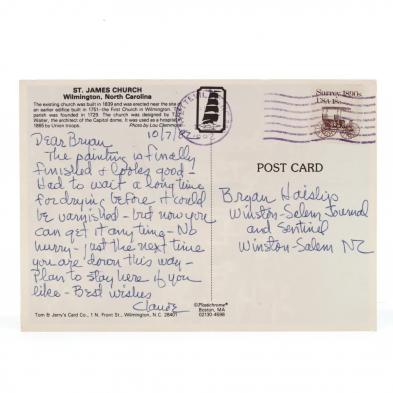 ST. JAMES CHURCH
Wilmington, North Carolina
The existing church was built in 1839 and was erected near the site of
an earlier edifice built in 1751—the First Church in Wilmington. The
parish was founded in 1729. The church was designed by T.U.
Walter, the architect of the Capitol dome. It was used as a hospital in
1865 by Union troops.
Photo by Lou Clemmons
10/7/82
Dear Bryan
The painting is finally
finished & looks good -
Had to wait a long time
for drying before it could
be varnished - but now you
can get it any time - No
hurry - just the next time
you are down this way -
Plan to stay here if you
like - Best wishes
Claude
Tom & Jerry's Card Co., 1 N. Front St., Wilmington, N.C. 28401
©Plastichrome®
Boston, MA
02130-4698
Surrey 1890s
USA 18c
POST CARD
Bryan Haislip
Winston-Salem Journal
and Sentinel
Winston-Salem NC